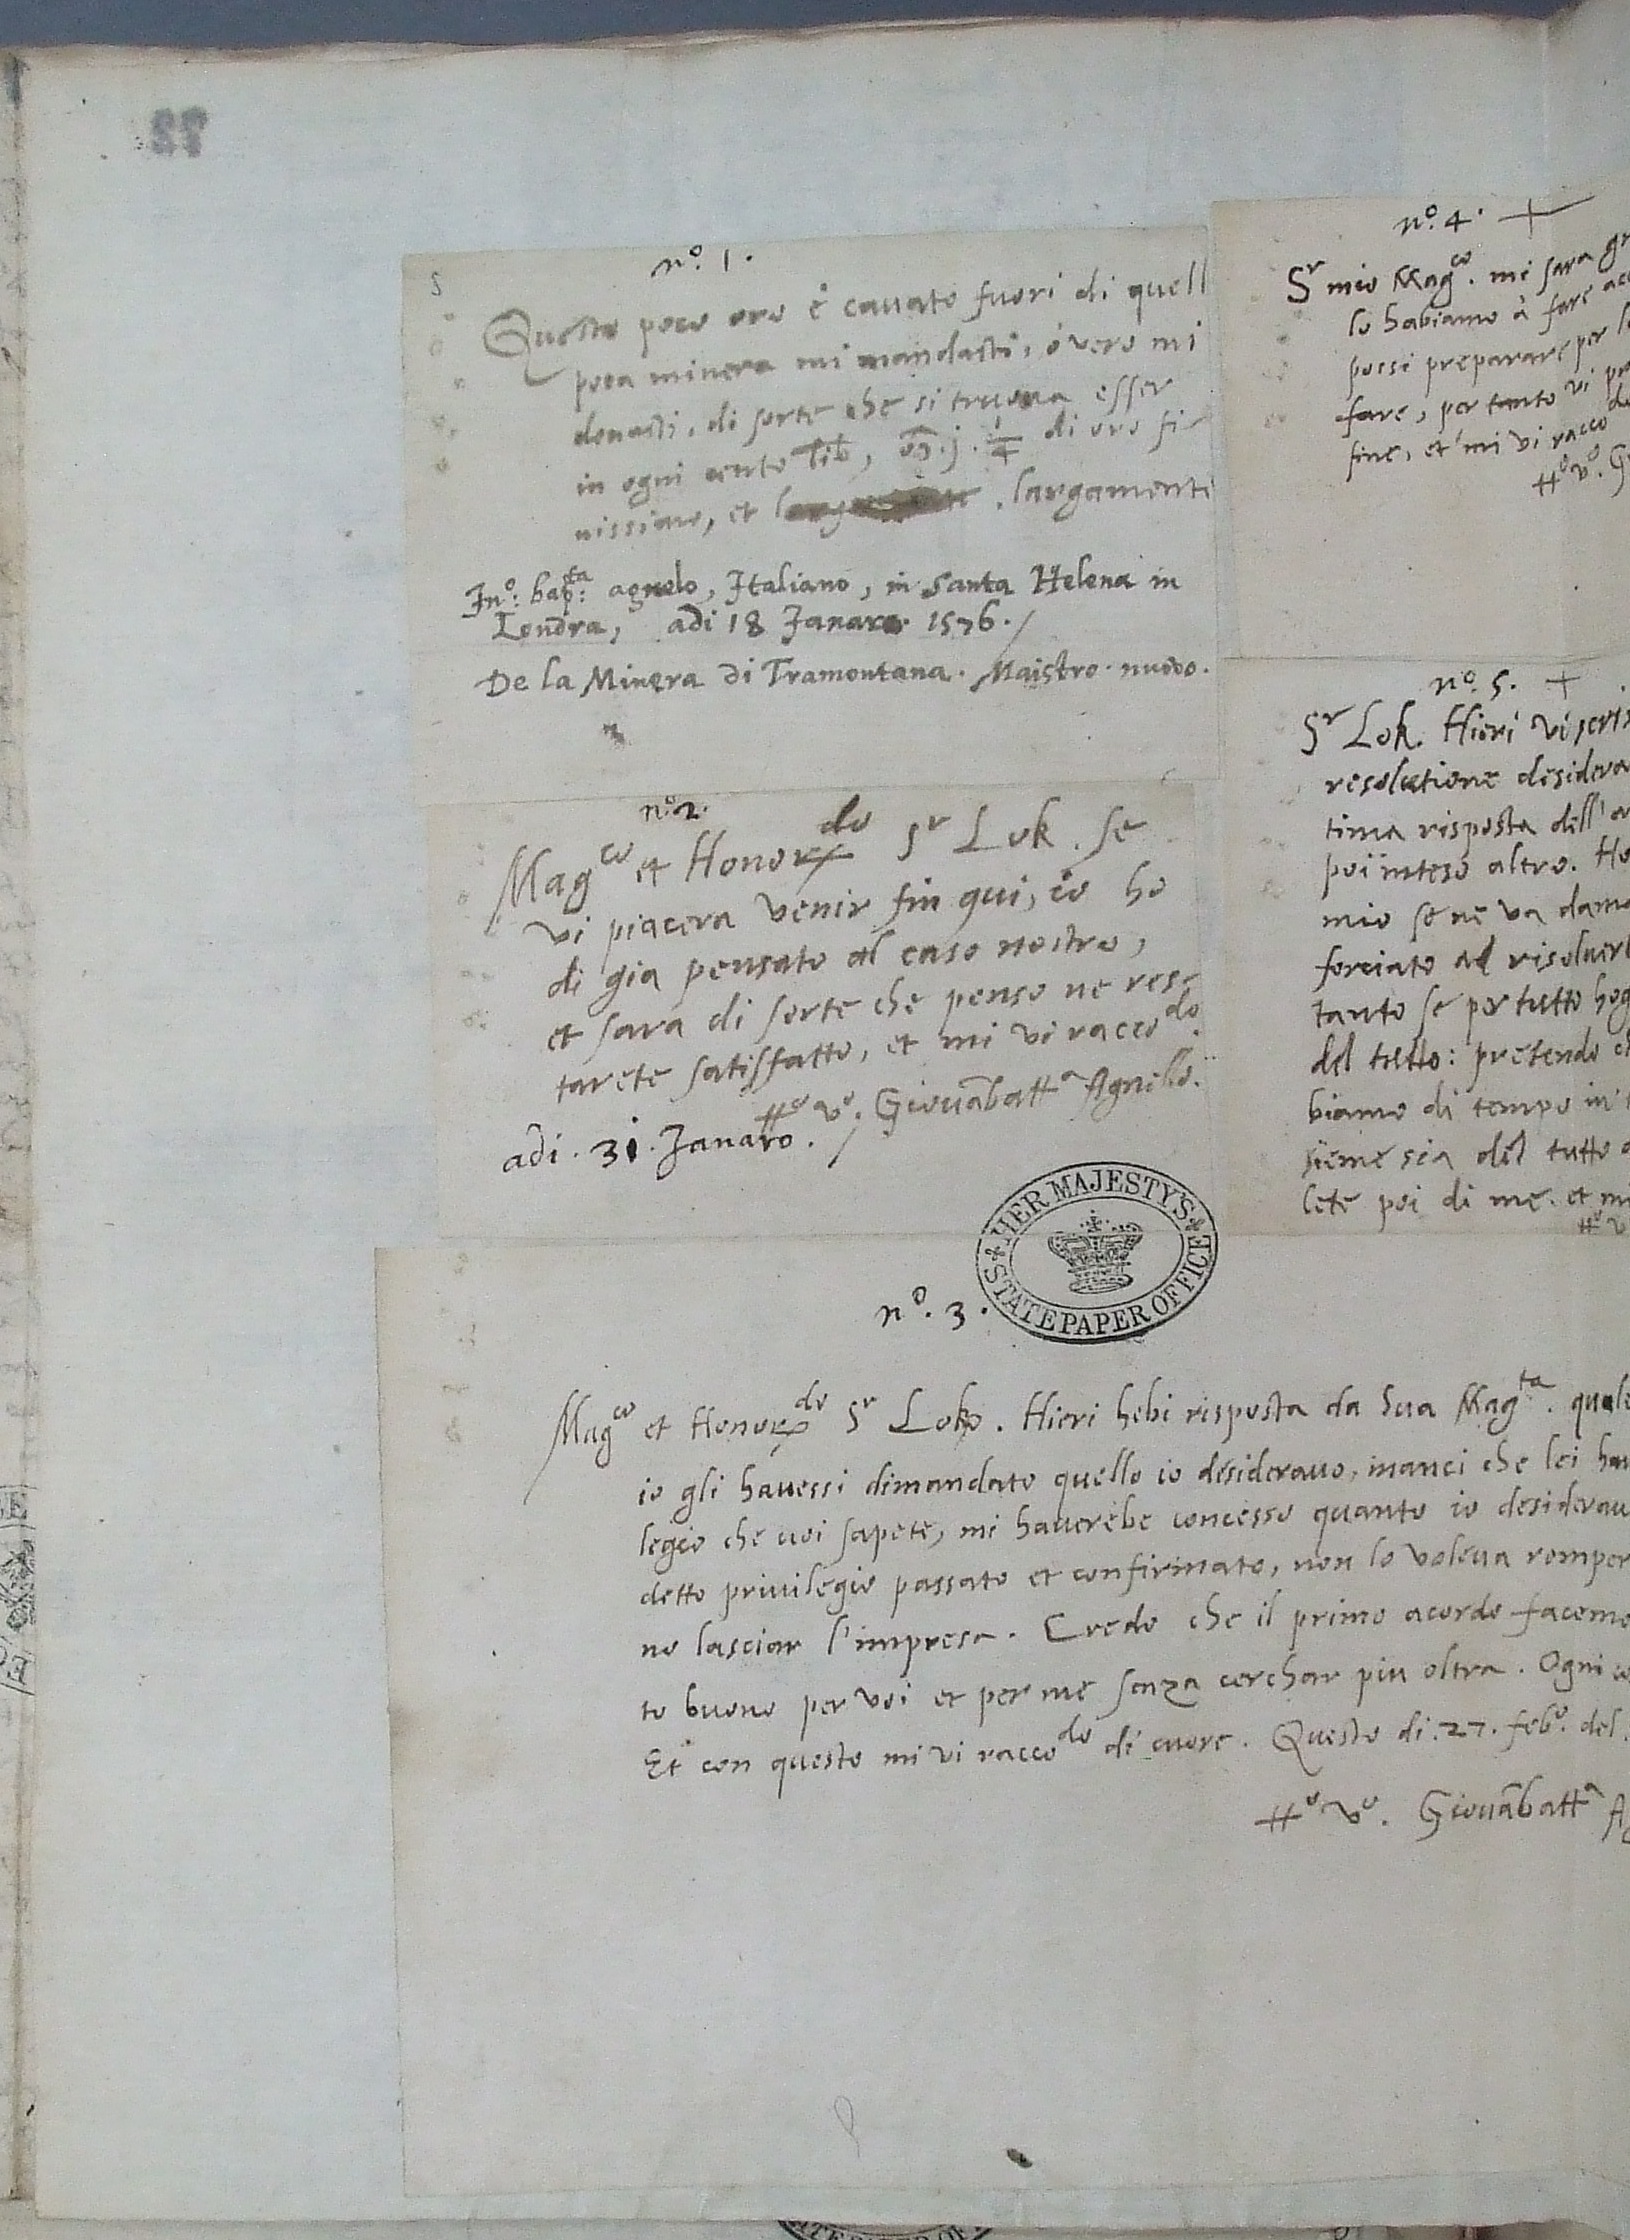 nº. 1.
Questo poco oro è cauato fuori di quell
poca minera mi mandasti, ò vero mi
donasti, di sorte che si truoua esser
in ogni cento lib, oz. j. 1/4 di oro fi-
nissimo, et largamente . largamente
Jnº: bapta: agnelo, Italiano, in Santa Helena in
Londra, adi 18 Janaro 1576. /
De la Minera di Tramontana. Maistro nuovo.
nº 2.
Magco et Honordo Sr Lok. se
vi piacera venir fin qui, io ho
di gia pensato al caso nostro,
et sara di sorte che penso ne res-
tarete satisfatto, et mi vi raccodo.
Ttº Vº. Giouãbatta Agnello.
adi. 31. Janaro. /
HER MAJESTY'S
STATE PAPER OFFICE
nº. 3.
Magco et Honordo Sr Loko. Hieri hebi risposta da Sua Magta. quale
io gli hauessi dimandato quello io desiderauo, inanci che lei hau
legio che uoi sapete, mi hauerebe concesso quanto io desiderau
detto priuilegio passato et confirmato, non lo voleua romper
no lasciar l'impresa. Credo che il primo acordo facemo
to buono per voi et per me senza cerchar piu oltra. Ogni co
Et con questo mi vi raccodo di cuore. Questo di .27. febº. del.
Ttº Vº. Giouãbatta Ag
nº. 4.
Sr mio Magco. mi sara gr
lo habiamo à fare acc
possi preparare per la
fare, per tanto vi pr
fine, et mi vi raccodo
Ttº Vº. Gi
nº. 5.
Sr Lok. Hieri vi scris
resolutione desidera
tima risposta dell'a
poi inteso altro. Ho
mio se ne va dama
forciato al risoluerl
tanto se per tutto hog
del tutto: pretendo ch
biamo di tempo in
sieme sia del tutto
lete poi di me. et mi
Ttº V